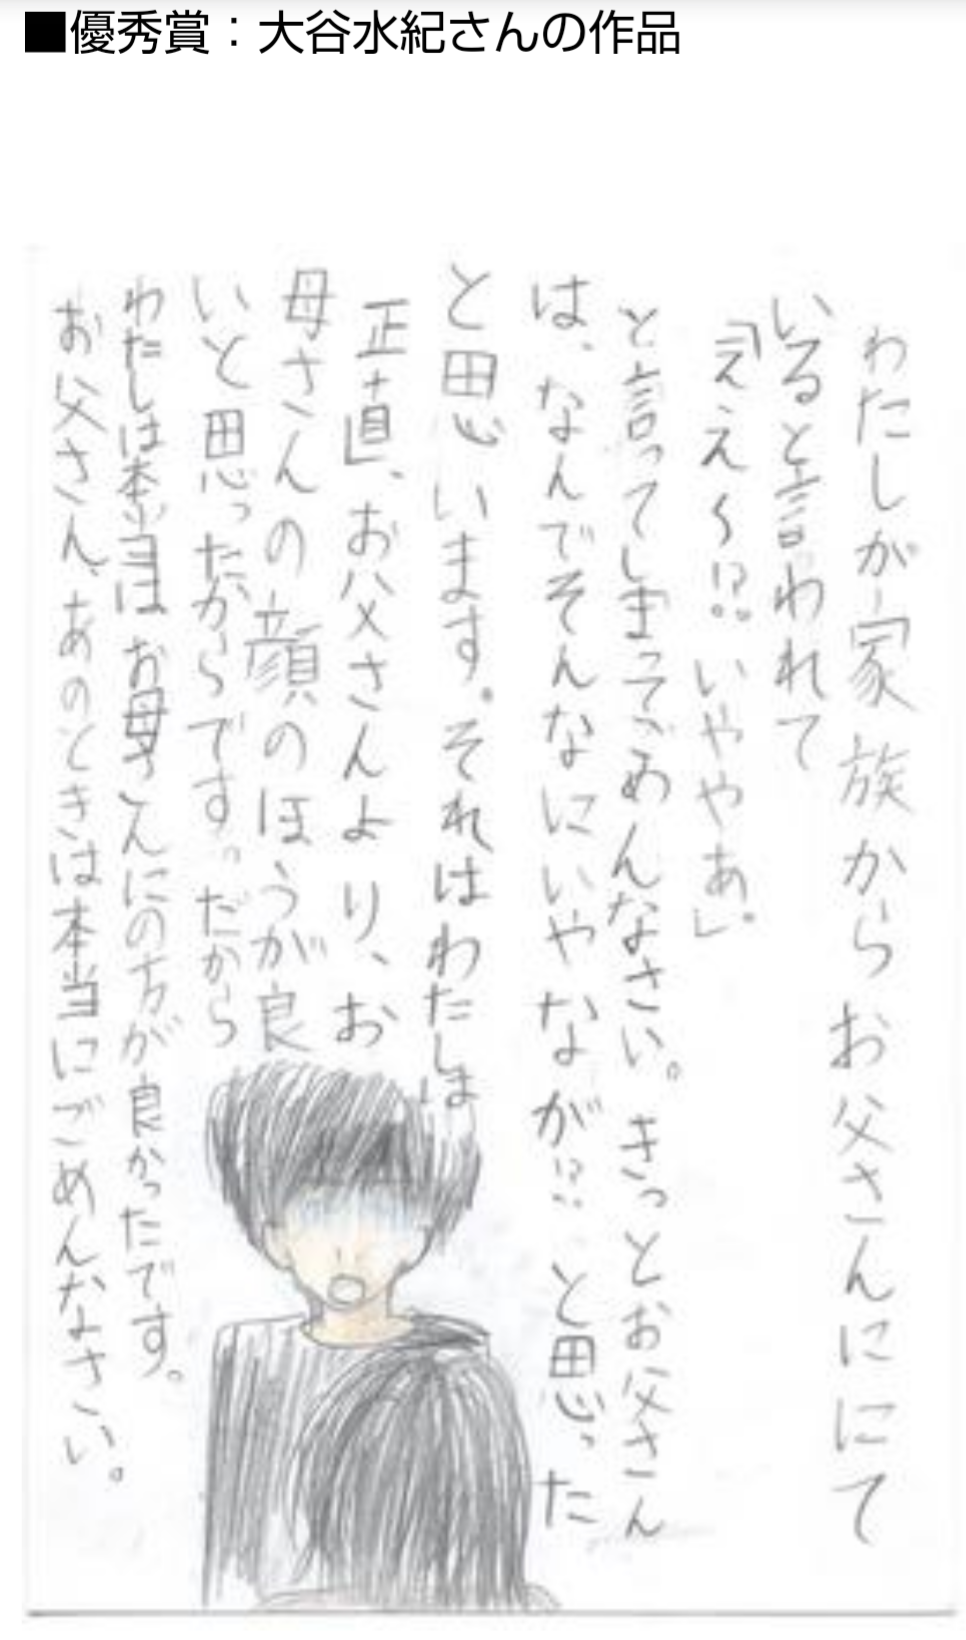 ■優秀賞：大谷水紀さんの作品
わたしが家族からお父さんににて
いると言われて
「ええ～!?いややあ」。
と言ってしまってごめんなさい。きっとお父さん
は、なんでそんなにいやなが!?と思った
と思います。それはわたしは
正直、お父さんより、お
母さんの顔のほうが良
いと思ったからです。だから
わたしは本当はお母さんにの方が良かったです。
お父さん、あのときは本当にごめんなさい。